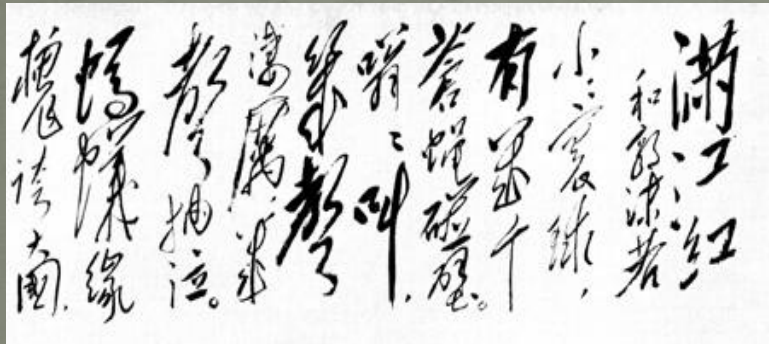 满江红
和郭沫若
小小寰球，
有几个
苍蝇碰壁。
嗡嗡叫，
几聲
凄厲，几
聲抽泣。
螞蟻缘
槐誇大国，